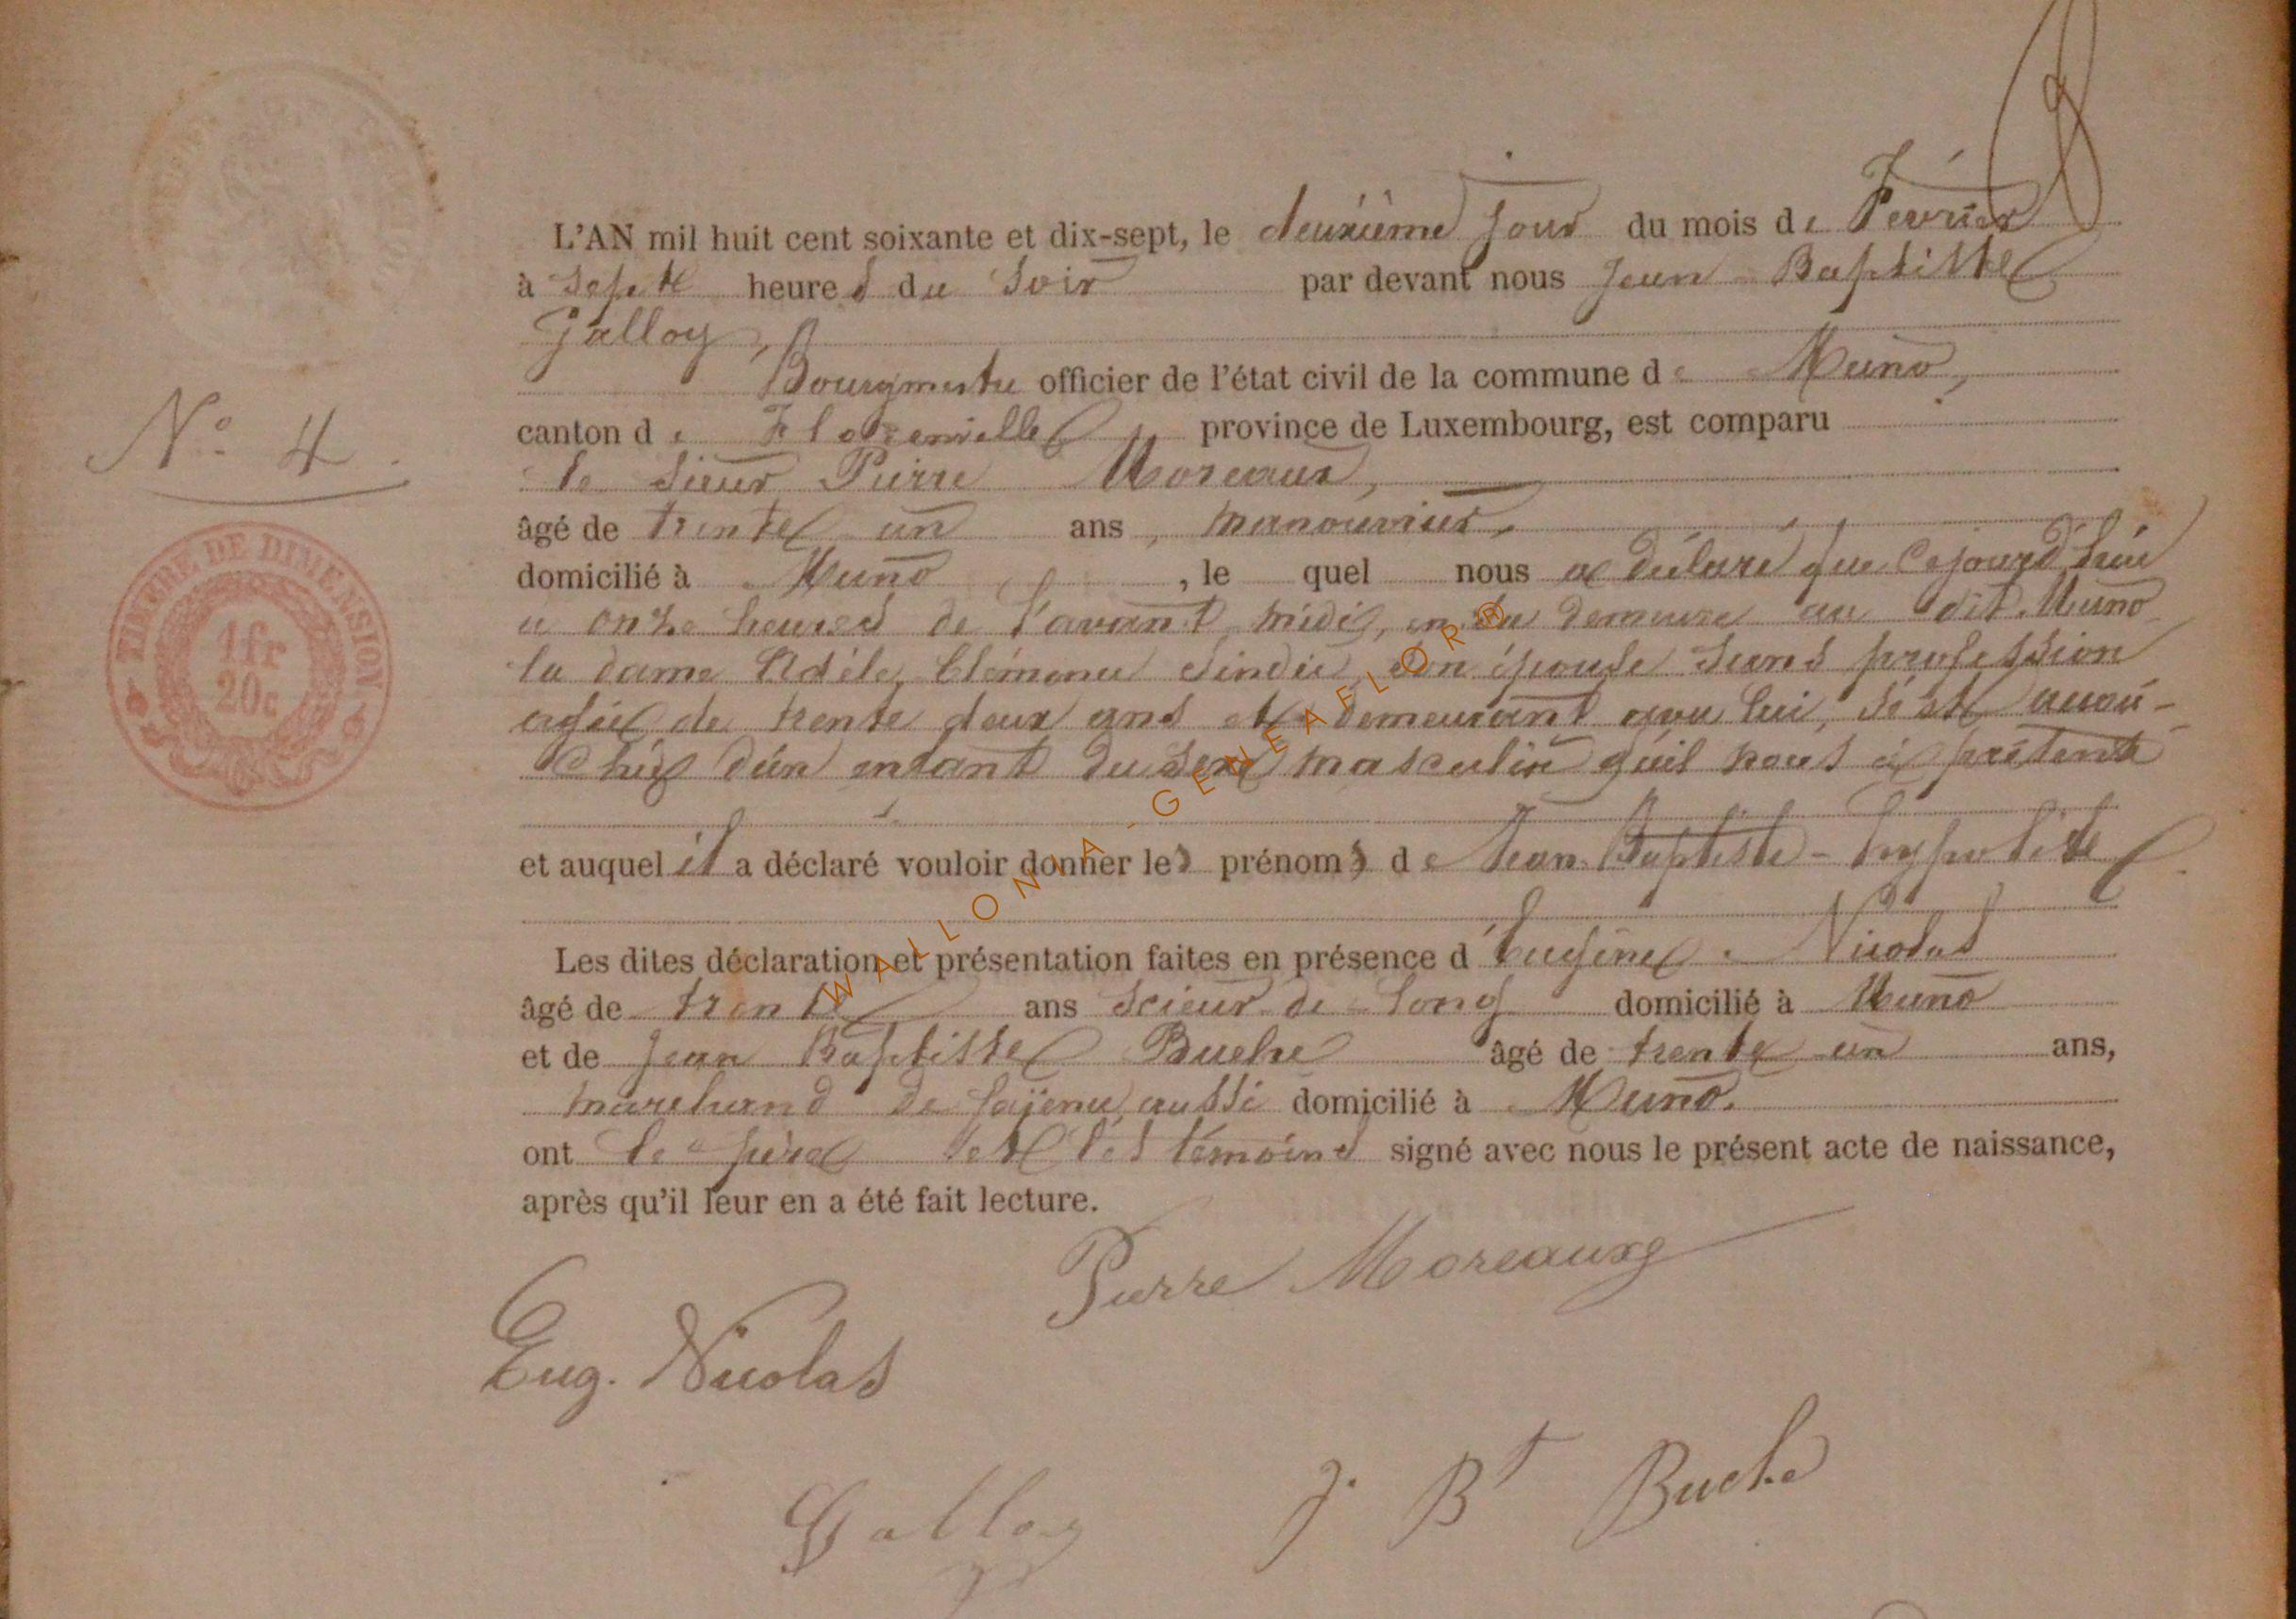 L'AN mil huit cent soixante et dix-sept, le deuxième jour du mois de Février
à sept heures du soir par devant nous Jean-Baptiste
Galloy,
Bourgmestre officier de l'état civil de la commune de Muno,
canton de Florenville, province de Luxembourg, est comparu
le sieur Pierre Moreaux,
âgé de trente un ans, manouvrier,
domicilié à Muno, le quel nous a déclaré que cejourd'hui
à onze heures de l'avant midi, en sa demeure au dit Muno
la dame Adèle Clémence son épouse sans profession
agée de trente deux ans et demeurant avec lui, s'est accou-
chée d'un enfant du sexe masculin qu'il nous a présenté
et auquel il a déclaré vouloir donner les prénoms de Jean-Baptiste-Hypolite
Les dites déclaration et présentation faites en présence d'Eugène Nicolas
âgé de trente ans scieur de long domicilié à Muno
et de Jean Baptiste Buche âgé de trente un ans,
marchand de faïence aussi domicilié à Muno.
ont le père et les témoins signé avec nous le présent acte de naissance,
après qu'il leur en a été fait lecture.
Pierre Moreaux
Eug. Nicolas
J. Bt Buche
Galloy
N° 4.
TIMBRE DE DIMENSION
1 fr
20c
WALLONIA-GENEAFLOR®